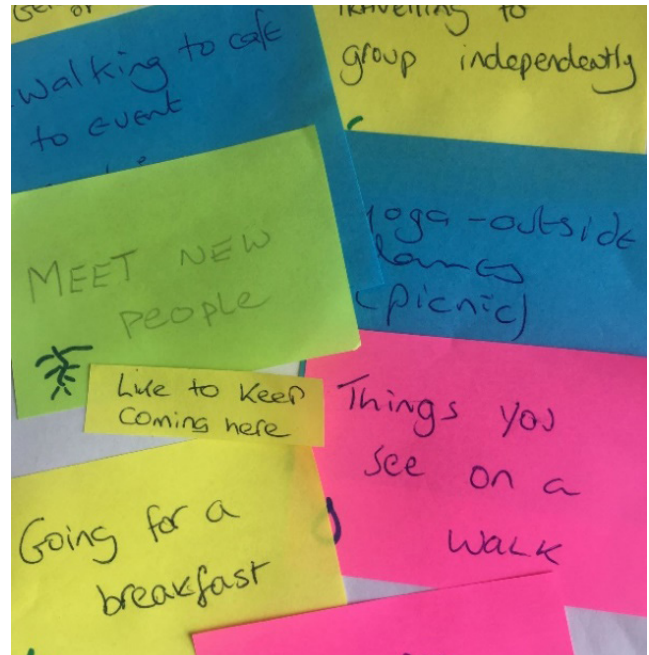 walking to cafe
to event
Travelling to
group independently
MEET NEW
people
yoga - outside
(picnic)
Like to keep
coming here
Things you
see on a
WALK
Going for a
breakfast